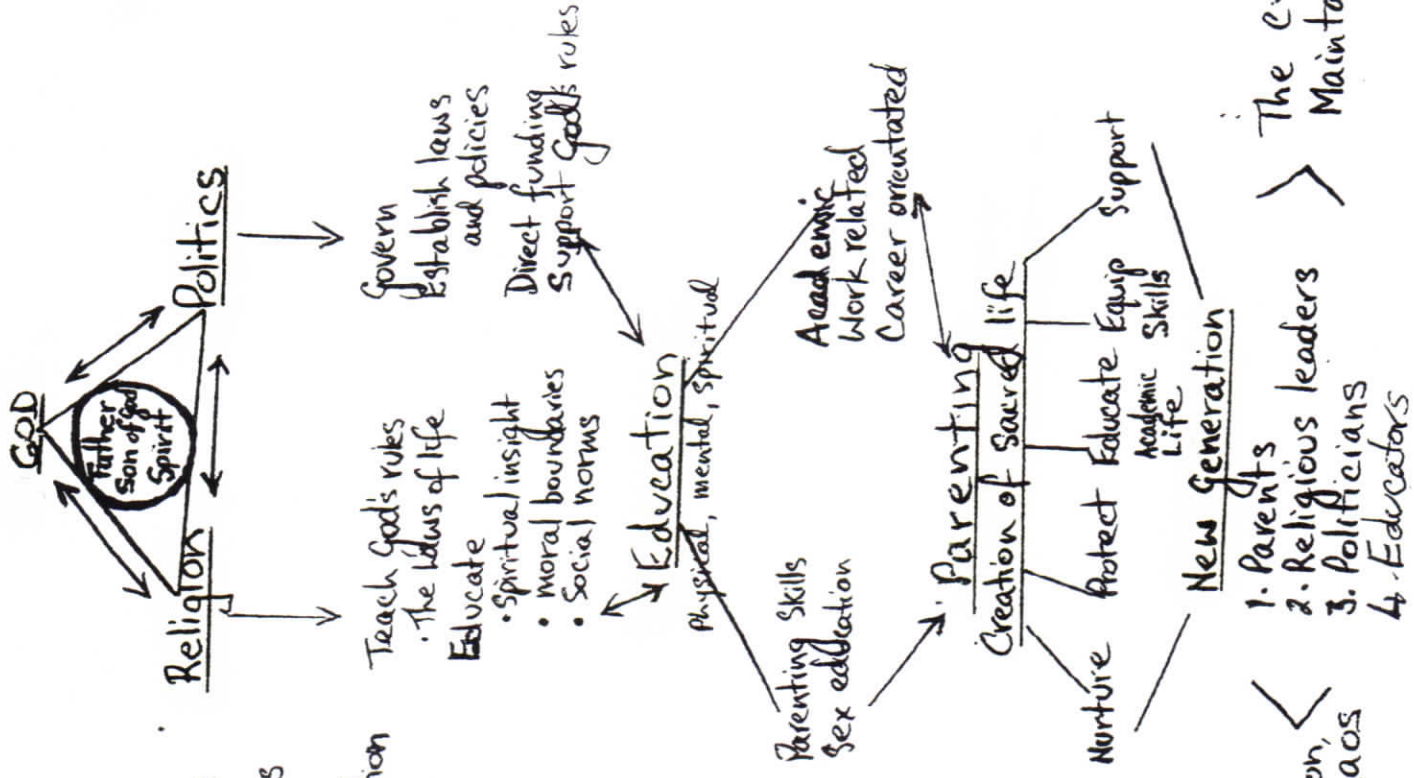 GOD
Father
Son of God
Spirit
Religion
Politics
Teach God's rules
• The Laws of life
Educate
• Spiritual insight
• moral boundaries
• Social norms
Govern
Establish laws
and policies
Direct funding
Support God's rules
Education
Physical, mental, spiritual
Parenting Skills
Sex education
Academic
Work related
Career orientated
Parenting
Creation of Sacred life
Nurture
Protect
Educate
Academic
Life
Equip
Skills
Support
New Generation
1. Parents
2. Religious leaders
3. Politicians
4. Educators
The
Mainta